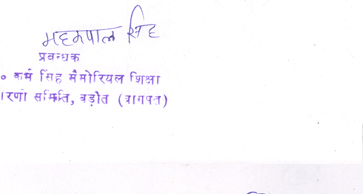 महकपाल सिंह
प्रबन्धक
० कर्म सिंह मैमोरियल शिक्षा
ारणी समिति, बड़ौत (बागपत)